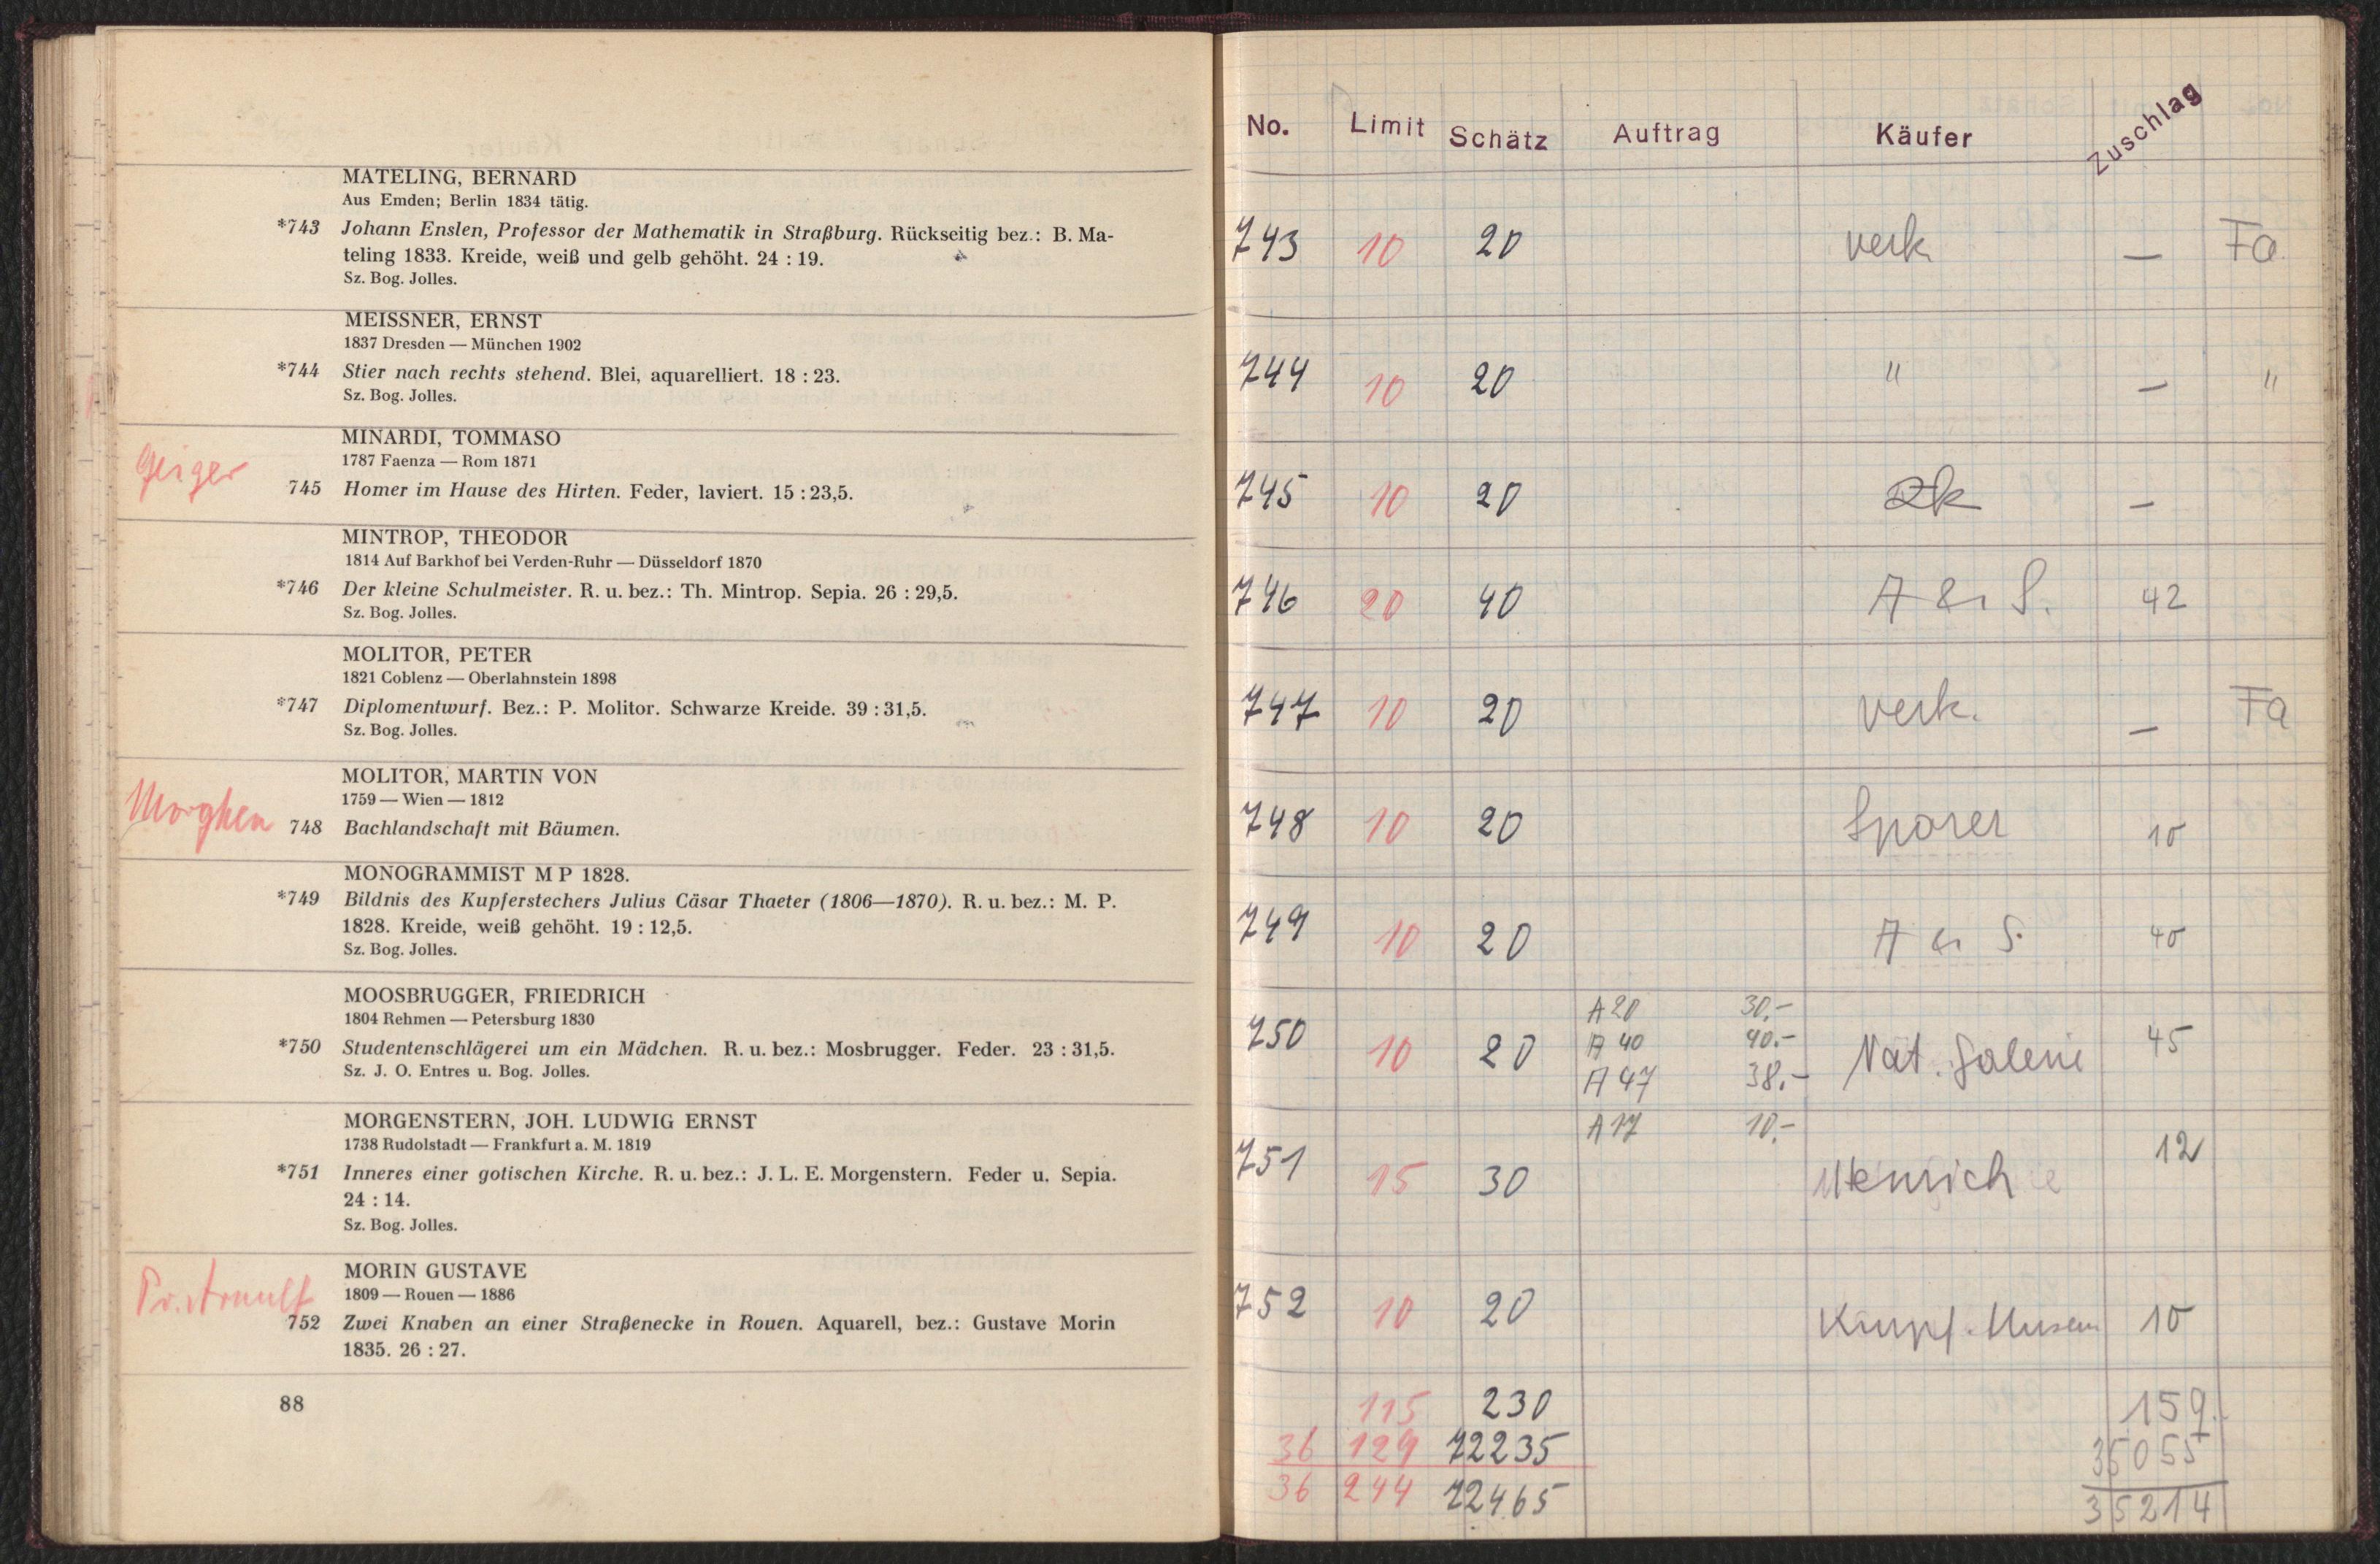 MATELING, BERNARD
Aus Emden; Berlin 1834 tätig.
*743 Johann Enslen, Professor der Mathematik in Straßburg. Rückseitig bez.: B. Ma-
teling 1833. Kreide, weiß und gelb gehöht. 24 : 19.
Sz. Bog. Jolles.
MEISSNER, ERNST
1837 Dresden — München 1902
*744 Stier nach rechts stehend. Blei, aquarelliert. 18 : 23.
Sz. Bog. Jolles.
Geiger
MINARDI, TOMMASO
1787 Faenza — Rom 1871
745 Homer im Hause des Hirten. Feder, laviert. 15 : 23,5.
MINTROP, THEODOR
1814 Auf Barkhof bei Verden-Ruhr — Düsseldorf 1870
*746 Der kleine Schulmeister. R. u. bez.: Th. Mintrop. Sepia. 26 : 29,5.
Sz. Bog. Jolles.
MOLITOR, PETER
1821 Coblenz — Oberlahnstein 1898
*747 Diplomentwurf. Bez.: P. Molitor. Schwarze Kreide. 39 : 31,5.
Sz. Bog. Jolles.
Morghen
MOLITOR, MARTIN VON
1759 — Wien — 1812
748 Bachlandschaft mit Bäumen.
MONOGRAMMIST M P 1828.
*749 Bildnis des Kupferstechers Julius Cäsar Thaeter (1806—1870). R. u. bez.: M. P.
1828. Kreide, weiß gehöht. 19 : 12,5.
Sz. Bog. Jolles.
MOOSBRUGGER, FRIEDRICH
1804 Rehmen — Petersburg 1830
*750 Studentenschlägerei um ein Mädchen. R. u. bez.: Mosbrugger. Feder. 23 : 31,5.
Sz. J. O. Entres u. Bog. Jolles.
MORGENSTERN, JOH. LUDWIG ERNST
1738 Rudolstadt — Frankfurt a. M. 1819
*751 Inneres einer gotischen Kirche. R. u. bez.: J. L. E. Morgenstern. Feder u. Sepia.
24 : 14.
Sz. Bog. Jolles.
Pr. Arnulf
MORIN GUSTAVE
1809 — Rouen — 1886
752 Zwei Knaben an einer Straßenecke in Rouen. Aquarell, bez.: Gustave Morin
1835. 26 : 27.
88
No. Limit Schätz Auftrag Käufer Zuschlag
743 10 20 verk — Fa.
744 10 20 " — "
745 10 20 Zk —
746 20 40 A & S. 42
747 10 20 verk. — Fa
748 10 20 Sporer 10
749 10 20 A & S. 40
A 20 30.-
750 10 20 A 40 40.- Nat. Galerie 45
A 47 38.-
A 17 10.-
751 15 30 12
752 10 20 Kupf. Museum 10
115 230 159.
36 129 72235 35055
36 244 72465 35214